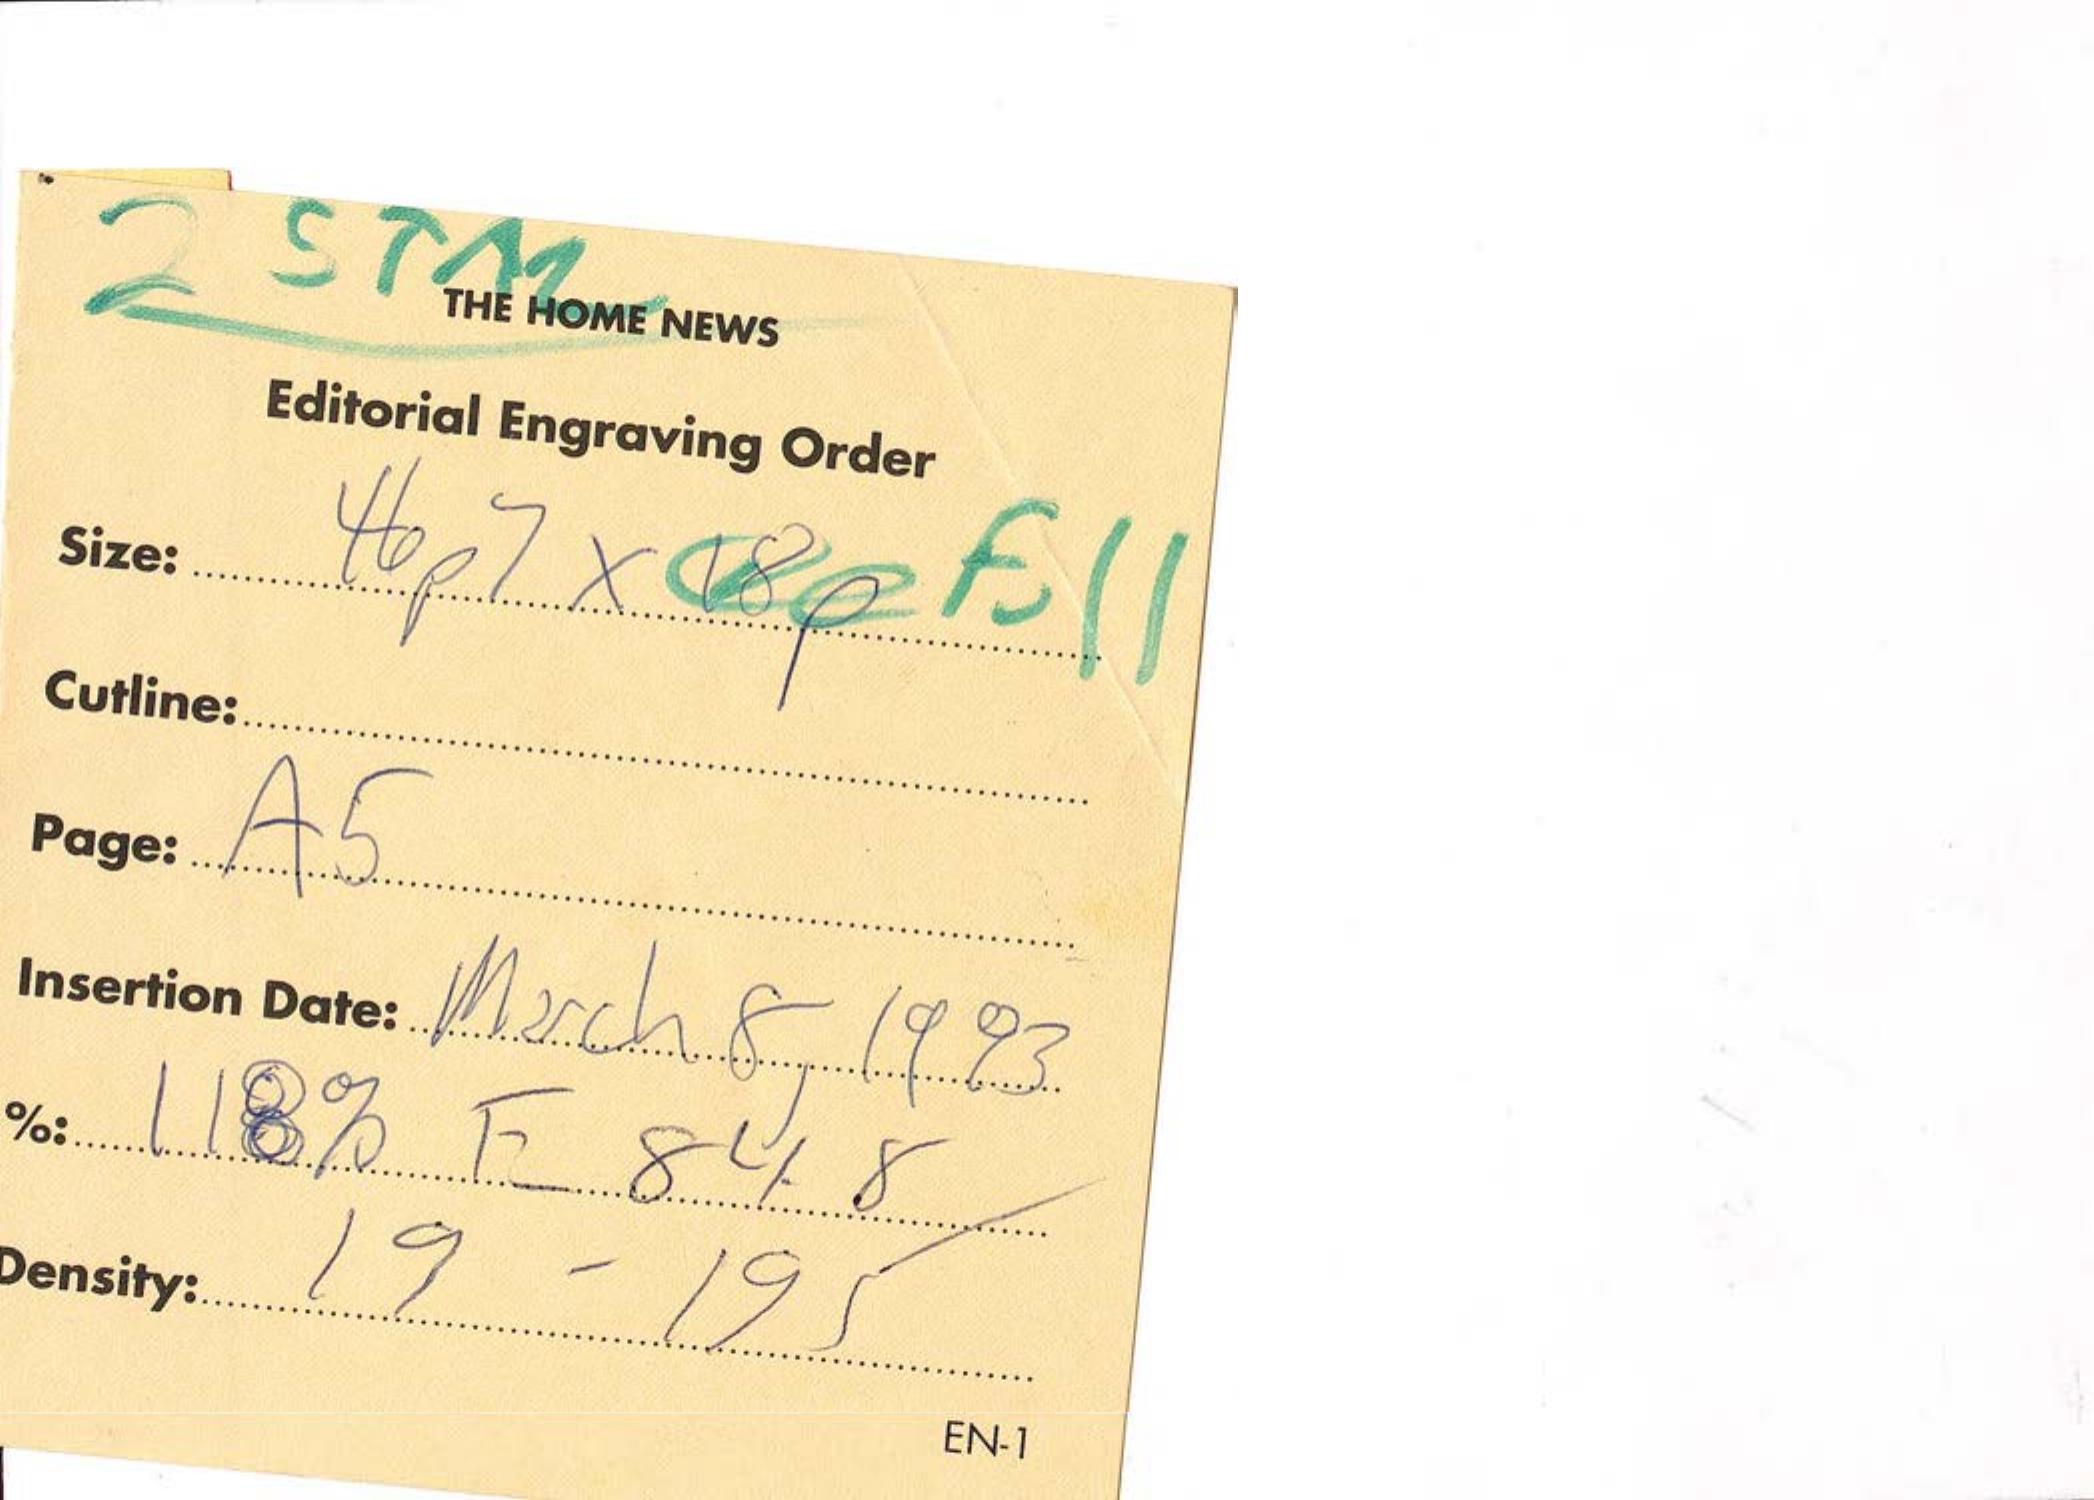 2 STM
THE HOME NEWS
Editorial Engraving Order
Size: 46p7 x 18p Full
Cutline:
Page: A5
Insertion Date: March 8, 1993
%: 118% E 848
Density: 19 - 195
EN-1